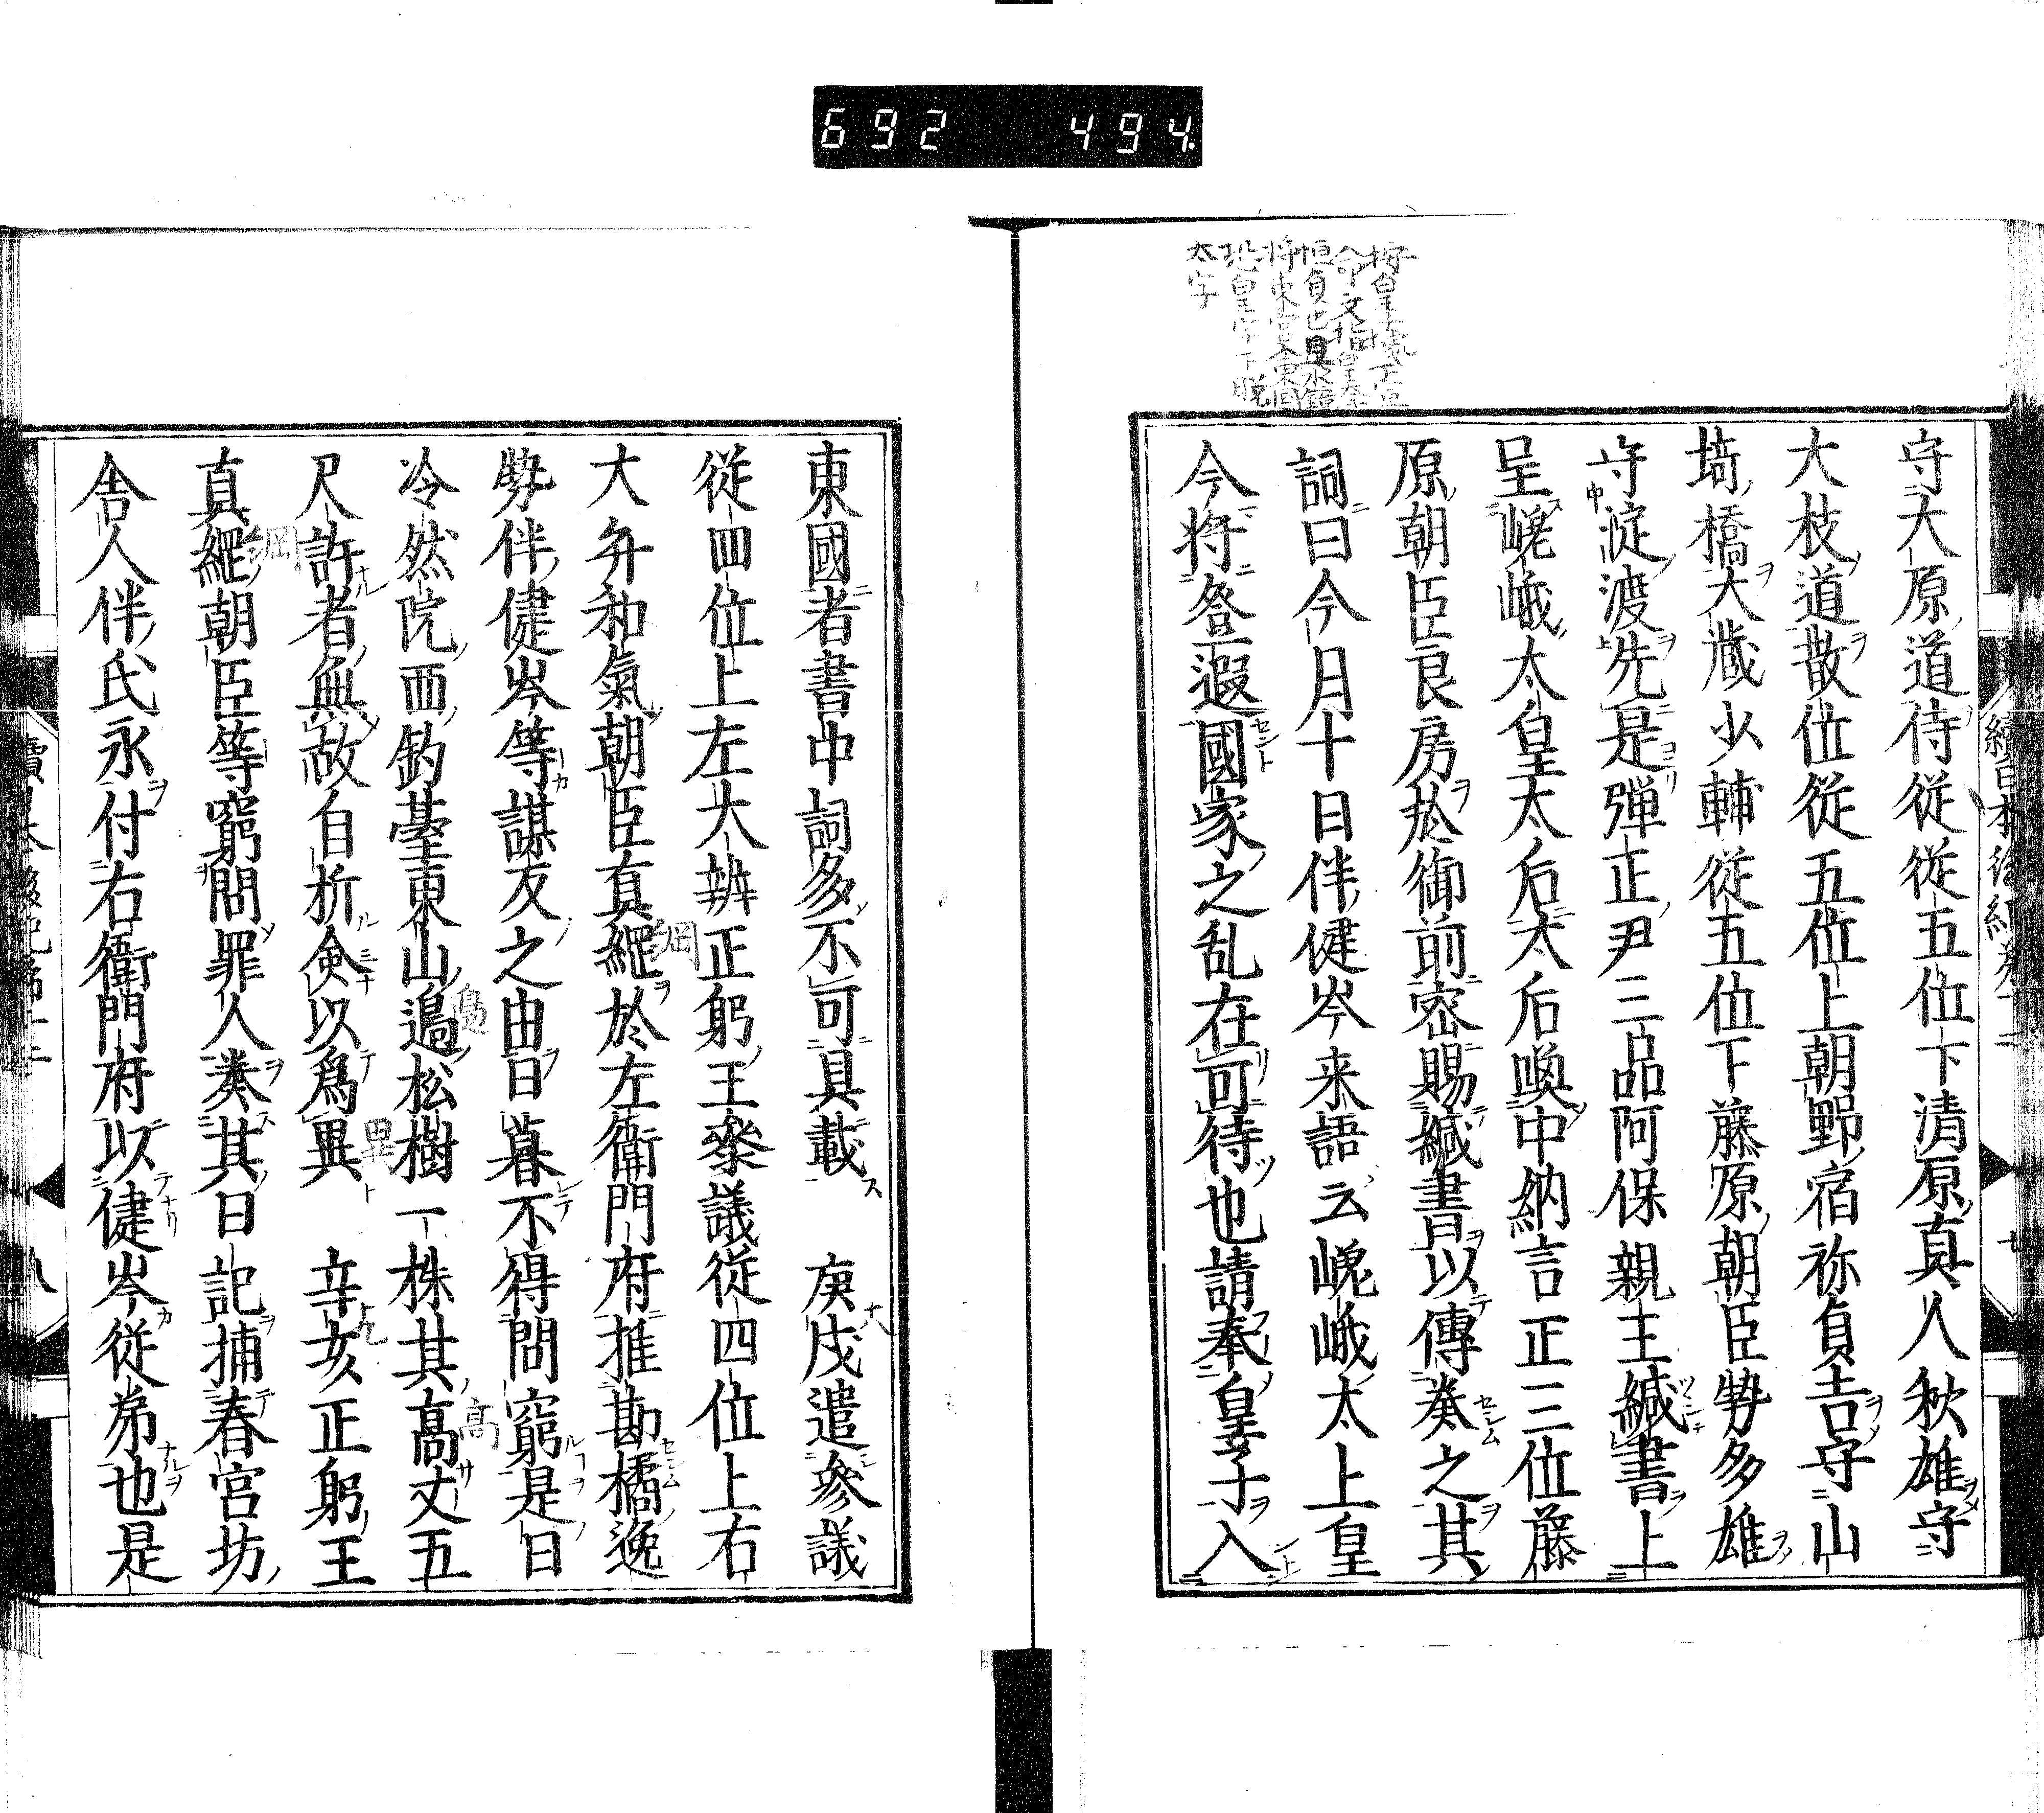 692 494
守大原道侍従従五位下清原真人秋雄守
大枝道散位従五位上朝野宿祢貞吉守山
埼橋大蔵少輔従五位下藤原朝臣勢多雄
守淀渡先是弾正尹三品阿保親王緘書上
呈嵯峨太皇太后太后喚中納言正三位藤
原朝臣良房於御前密賜緘書以傳奏之其
詞曰今月十日伴健岑来語云嵯峨太上皇
今将登遐國家之乱在可待也請奉皇子入
東國者書中詞多不可具載　庚戌遣参議
従四位上左大辨正躬王参議従四位上右
大弁和氣朝臣真綱於左衛門府推勘橘逸
勢伴健岑等謀反之由日暮不得問窮是日
冷然院西釣臺東山邊松樹一株其高丈五
尺許者無故自折僉以為異　辛亥正躬王
真綱朝臣等窮問罪人奏其日記捕春宮坊
舎人伴氏永付右衛門府以健岑従弟也是